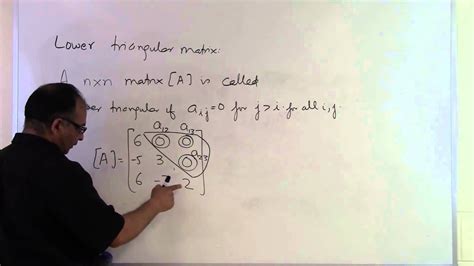 Lower triangular matrix:
A n×n matrix [A] is called
er triangular if a_ij=0 for j>i for all i,j.
a12 a13
6 0 0
[A]= -5 3 0 a23
6 2